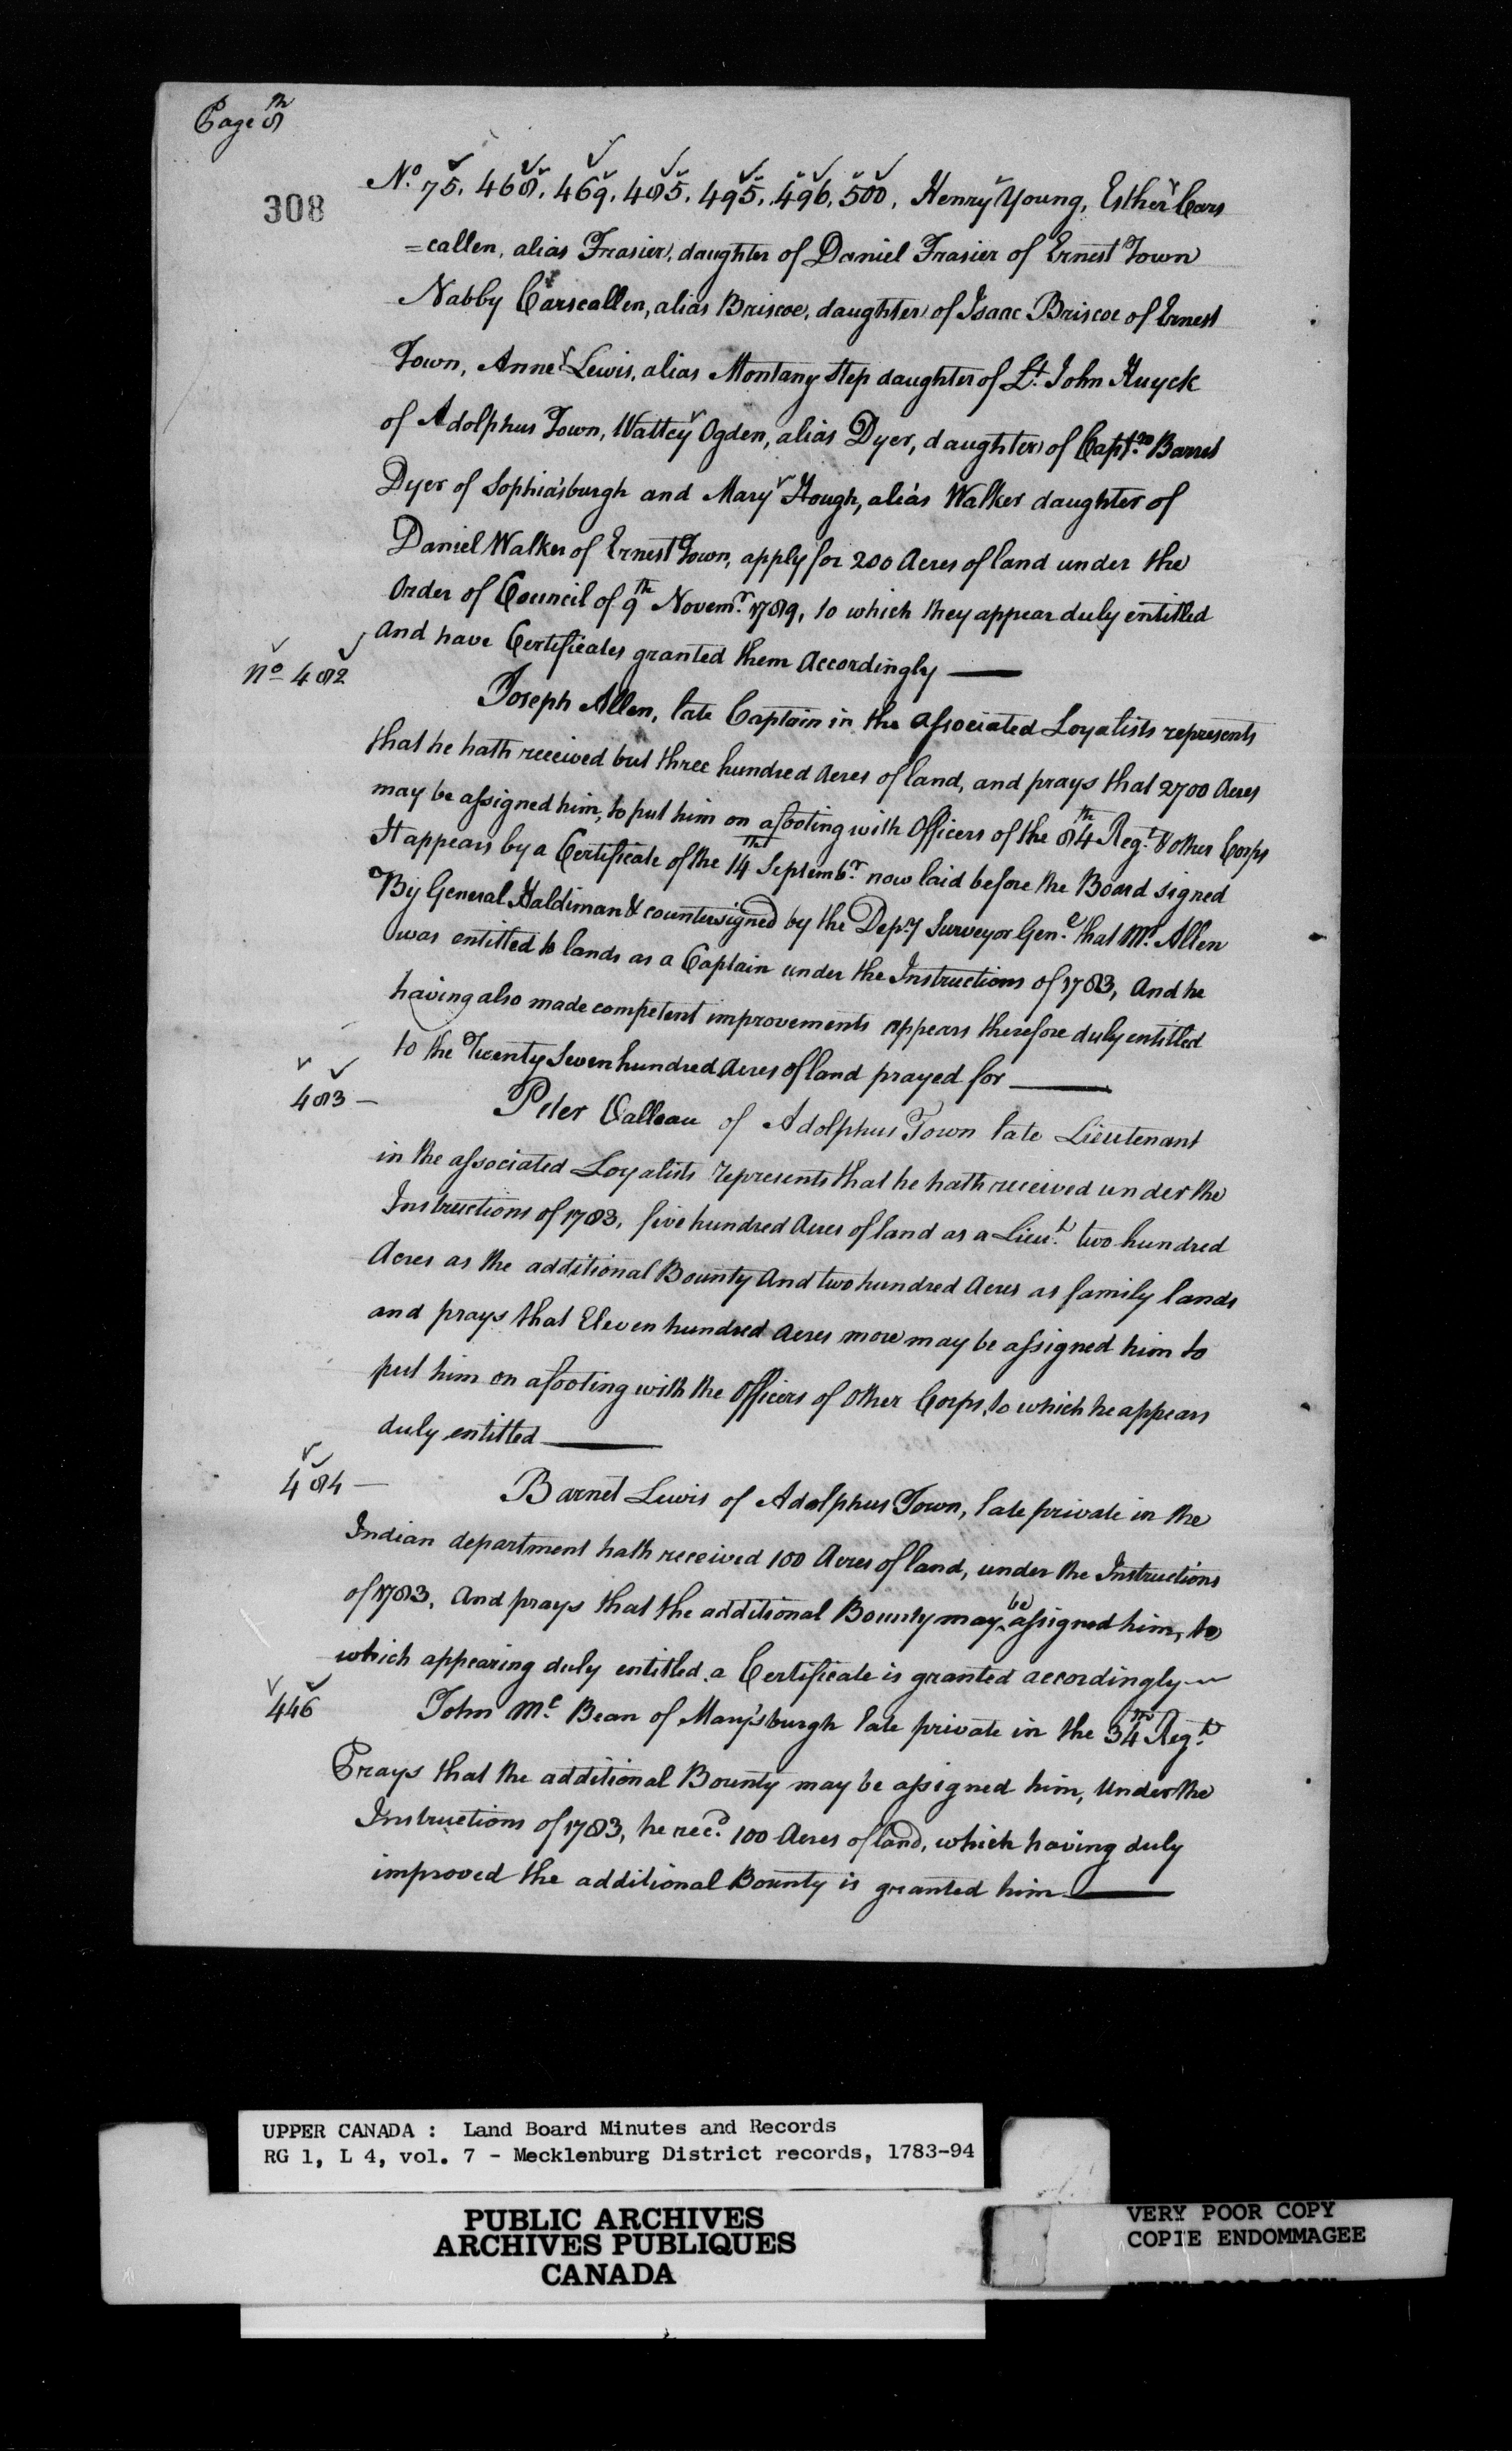 Page 8th
308
No. 75. 468. 469. 485. 495. 496. 500. Henry Young, Esther Cars
=callen, alias Frasier, daughter of Daniel Frasier of Ernest Town
Nabby Carscallen, alias Briscoe, daughter of Isaac Briscoe of Ernest
Town, Anne Lewis, alias Montany step daughter of Lt. John Huyck
of Adolphus Town, Wattey Ogden, alias Dyer, daughter of Captn. Barret
Dyer of Sophiasburgh and Mary Hough, alias Walker daughter of
Daniel Walker of Ernest Town, apply for 200 Acres of land under the
Order of Council of 9th Novemr. 1789, to which they appear duly entitled
And have Certificates granted them Accordingly —
No 482
Joseph Allen, late Captain in the associated Loyalists represents
that he hath received but three hundred Acres of land, and prays that 2700 Acres
may be assigned him, to put him on afooting with Officers of the 84th Regt. & other Corps
It appears by a Certificate of the 14th Septembr. now laid before the Board signed
By General Haldiman & countersigned by the Depy. Surveyor Genl. that Mr. Allen
was entitled to lands as a Captain under the Instructions of 1783, And he
having also made competent improvements appears therefore duly entitled
to the Twenty Seven hundred Acres of land prayed for —
483 —
Peter Valleau of Adolphus Town late Lieutenant
in the associated Loyalists represents that he hath received under the
Instructions of 1783, five hundred Acres of land as a Lieut. two hundred
Acres as the additional Bounty And two hundred Acres as family lands
and prays that Eleven hundred Acres more may be assigned him to
put him on afooting with the Officers of other Corps, to which he appears
duly entitled —
484 —
Barnet Lewis of Adolphus Town, late private in the
Indian department hath received 100 Acres of land, under the Instructions
of 1783, And prays that the additional Bounty may be assigned him, to
which appearing duly entitled a Certificate is granted accordingly —
446
John Mc. Bean of Marysburgh late private in the 34th Regt.
Prays that the additional Bounty may be assigned him, Under the
Instructions of 1783, he recd. 100 Acres of land, which having duly
improved the additional Bounty is granted him —
UPPER CANADA : Land Board Minutes and Records
RG 1, L 4, vol. 7 - Mecklenburg District records, 1783-94
PUBLIC ARCHIVES
ARCHIVES PUBLIQUES
CANADA
VERY POOR COPY
COPIE ENDOMMAGEE
VERY POOR COPY